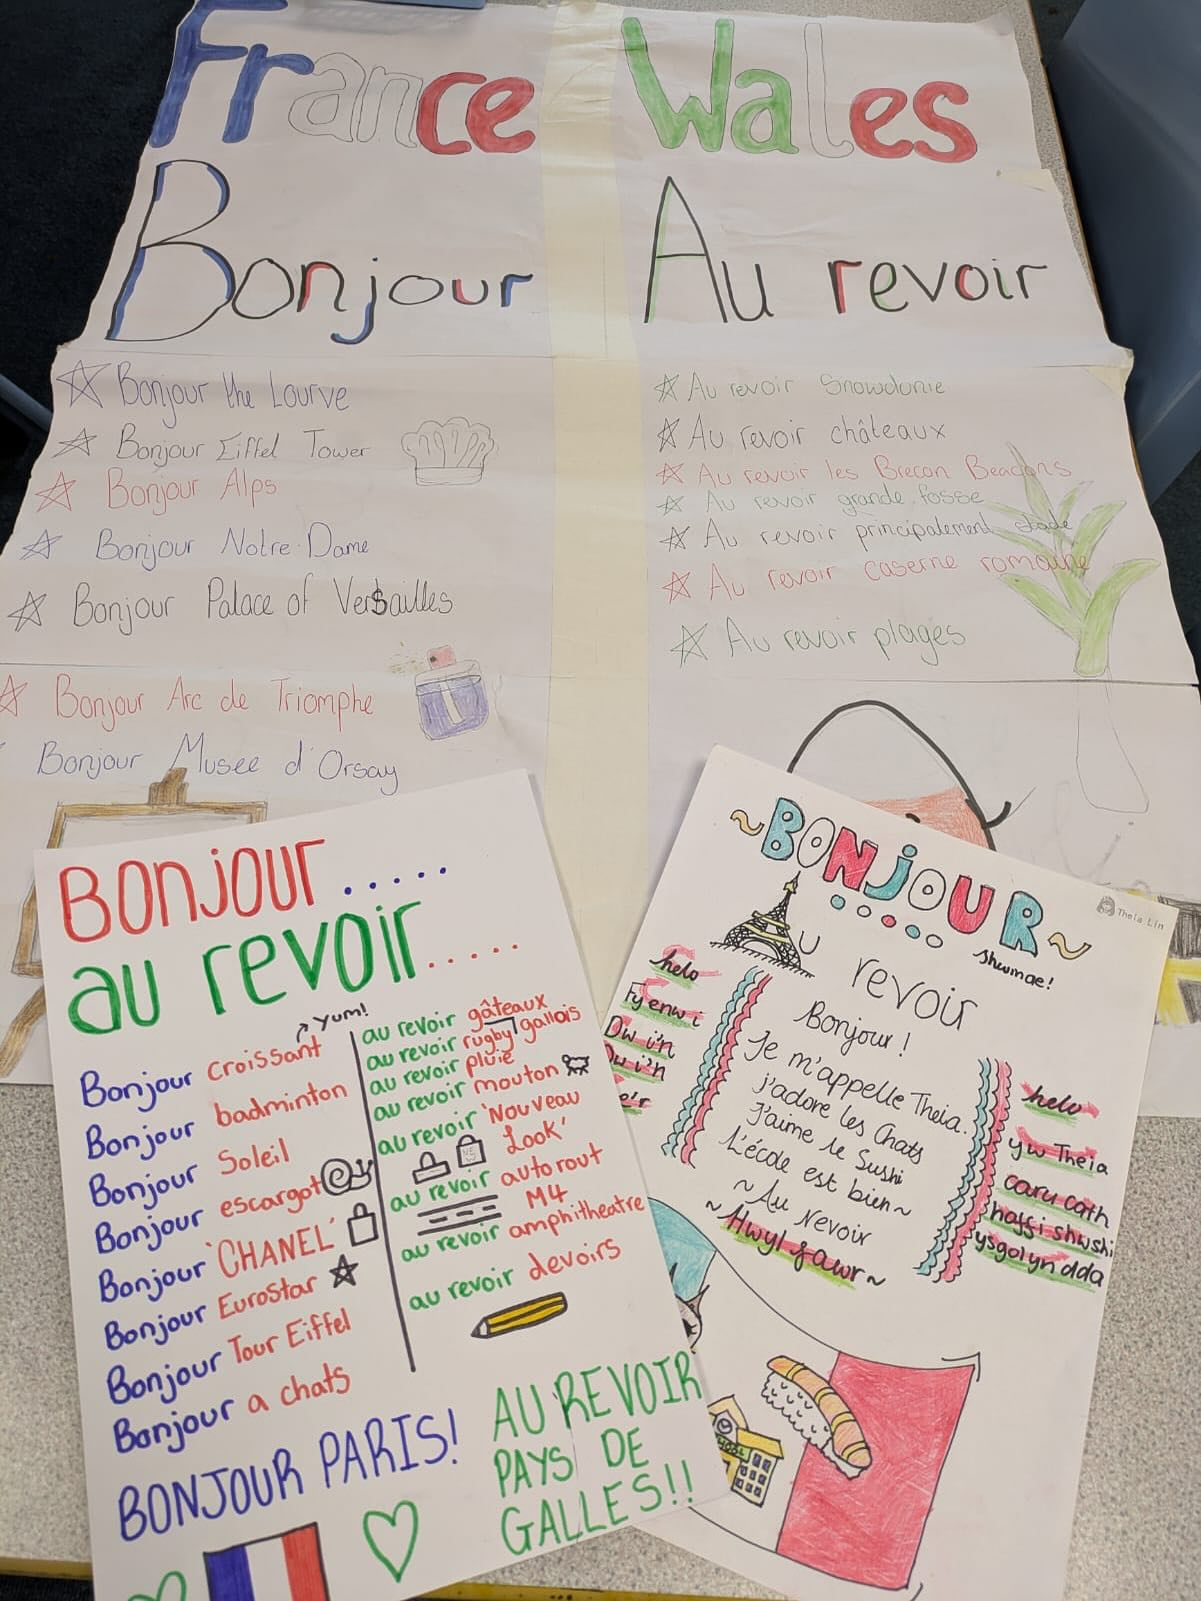 France Wales
Bonjour Au revoir
Bonjour the Lourve
Bonjour Eiffel Tower
Bonjour Alps
Bonjour Notre Dame
Bonjour Palace of Versailles
Bonjour Arc de Triomphe
Bonjour Musee d'Orsay
Au revoir Snowdonie
Au revoir châteaux
Au revoir les Brecon Beacons
Au revoir grande fosse
Au revoir principalement stade
Au revoir caserne romaine
Au revoir plages
BONJOUR.....
au revoir.....
Yum!
Bonjour croissant
Bonjour badminton
Bonjour Soleil
Bonjour escargot
Bonjour 'CHANEL'
Bonjour EuroStar
Bonjour Tour Eiffel
Bonjour a chats
au revoir gâteaux
au revoir rugby gallois
au revoir pluie
au revoir mouton
au revoir 'Nouveau
Look'
au revoir autorout
M4
au revoir amphitheatre
au revoir devoirs
BONJOUR PARIS!
AU REVOIR
PAYS DE
GALLES!!
~BONJOUR~
Theia Lin
Shwmae!
U
revoir
helo
Fy enw i
Dw i'n
Dw i'n
Bonjour!
Je m'appelle Theia.
j'adore les Chats
J'aime le Sushi
L'école est bien~
~Au Nevoir
~Hwyl fawr~
helo
yw Theia
caru cath
hoffi shwshi
ysgol yn dda